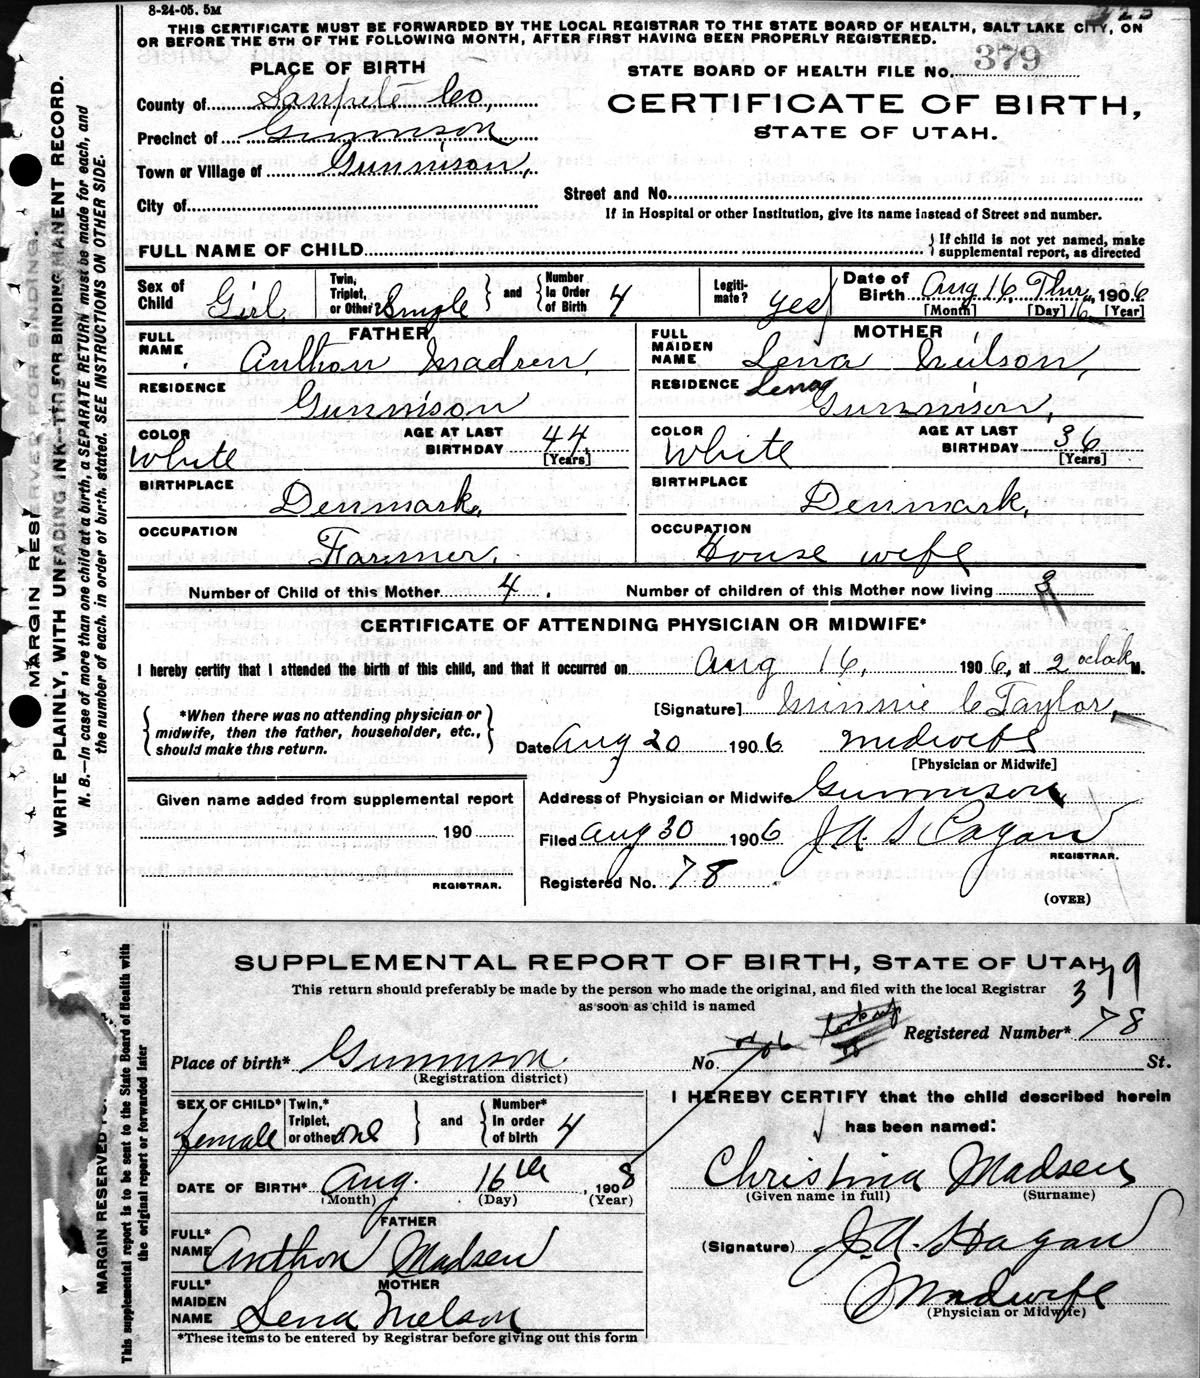 8-24-05. 5M
THIS CERTIFICATE MUST BE FORWARDED BY THE LOCAL REGISTRAR TO THE STATE BOARD OF HEALTH, SALT LAKE CITY, ON
OR BEFORE THE 5TH OF THE FOLLOWING MONTH, AFTER FIRST HAVING BEEN PROPERLY REGISTERED.
PLACE OF BIRTH
STATE BOARD OF HEALTH FILE NO. 379
County of Sanpete Co,
CERTIFICATE OF BIRTH,
Precinct of Gunnison
STATE OF UTAH.
Town or Village of Gunnison,
City of
Street and No.
If in Hospital or other Institution, give its name instead of Street and number.
FULL NAME OF CHILD
{ If child is not yet named, make
supplemental report, as directed
Sex of Child Girl
Twin, Triplet, or Other? Single } and { Number In Order of Birth 4
Legiti-mate? yes
Date of Birth Aug 16, Thur, 16 1906
[Month] [Day] [Year]
FATHER
FULL NAME Anthon Madsen,
MOTHER
FULL MAIDEN NAME Lena Neilson,
RESIDENCE Gunnison
RESIDENCE Lena Gunnison,
COLOR White
AGE AT LAST BIRTHDAY 44 [Years]
COLOR White
AGE AT LAST BIRTHDAY 36 [Years]
BIRTHPLACE Denmark,
BIRTHPLACE Denmark,
OCCUPATION Farmer,
OCCUPATION House wife
Number of Child of this Mother 4.
Number of children of this Mother now living 3
CERTIFICATE OF ATTENDING PHYSICIAN OR MIDWIFE*
I hereby certify that I attended the birth of this child, and that it occurred on Aug 16, 1906, at 2 oclock M.
{ *When there was no attending physician or midwife, then the father, householder, etc., should make this return. }
[Signature] Minnie C Taylor,
Date Aug 20 1906 midwife
[Physician or Midwife]
Given name added from supplemental report
Address of Physician or Midwife Gunnison
190
Filed Aug 30 1906 J. A. Hagan
REGISTRAR.
REGISTRAR.
Registered No. 78
(OVER)
MARGIN RESERVED FOR BINDING.
WRITE PLAINLY, WITH UNFADING INK—THIS FOR BINDING MANENT RECORD.
N. B.—In case of more than one child at a birth, a SEPARATE RETURN must be made for each, and
the number of each, in order of birth, stated. SEE INSTRUCTIONS ON OTHER SIDE.
SUPPLEMENTAL REPORT OF BIRTH, STATE OF UTAH
This return should preferably be made by the person who made the original, and filed with the local Registrar
as soon as child is named
379
Registered Number* 78
Place of birth* Gunnison
No. St.
(Registration district)
SEX OF CHILD* female
Twin,* Triplet, or other one } and { Number* in order of birth 4
I HEREBY CERTIFY that the child described herein
has been named:
DATE OF BIRTH* Aug. 16th, 1908
(Month) (Day) (Year)
Christina Madsen
(Given name in full) (Surname)
FATHER
FULL* NAME Anthon Madsen
(Signature) J. A. Hagan
MOTHER
FULL* MAIDEN NAME Lena Nielson
Madwife
(Physician or Midwife)
*These items to be entered by Registrar before giving out this form
MARGIN RESERVED FO
This supplemental report to be sent to the State Board of Health with
the original report or forwarded later